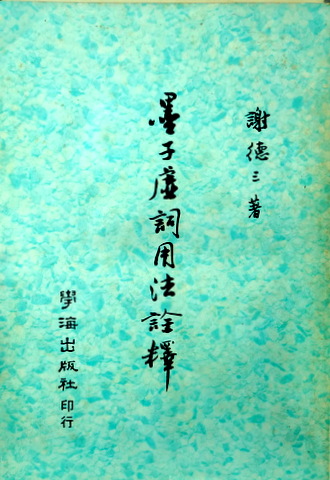 謝德三著
墨子虛詞用法詮釋
學海出版社印行